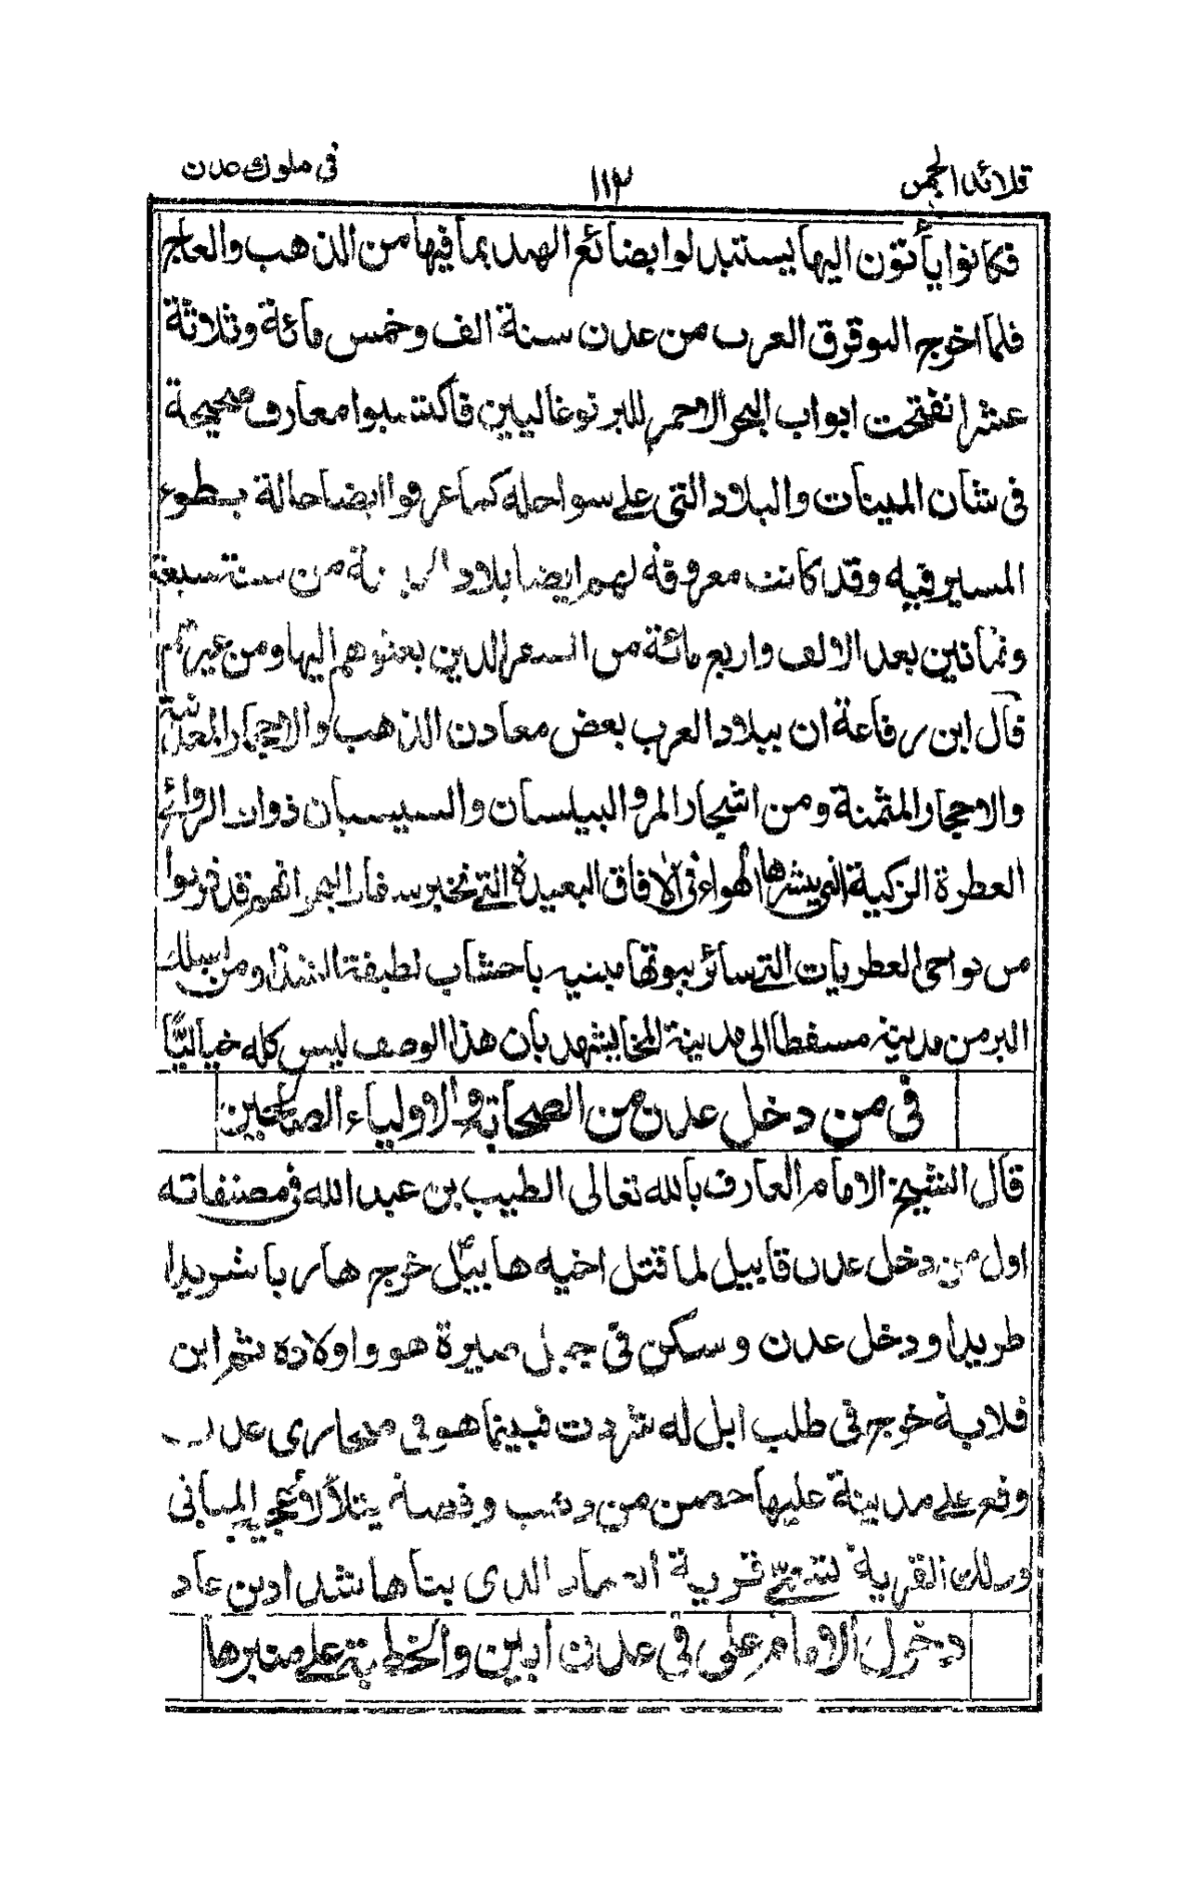 قلائد الجمن ١١٢ في ملوك عدن
فكانوا يأتون اليها ليستبدلوا بضائع الهند بما فيها من الذهب والعاج
فلما اخرج البوقرق العرب من عدن سنة الف وخمس مائة وثلاثة
عشر انفتحت ابواب البحر الاحمر للبرتوغاليين فاكتسبوا معارف صحيحة
في شأن المينات والبلاد التي على سواحله كما عرفوا ايضا حالة بسطوع
المسير فيه وقد كانت معروفة لهم ايضا بلاد من سنة سبعة
وثمانين بعد الالف واربع مائة من السفر الذين بعثوهم اليها ومن غيرهم
قال ابن رفاعة ان ببلاد العرب بعض معادن الذهب والاحجار المعدنية
والاحجار المثمنة ومن اشجار المر والبيلسان والسيسبان ذوات الروائح
العطرة الزكية التي ينشرها الهواء في الآفاق البعيدة التي تخبر سفار البحر انهم قد قربوا
من نواحي العطريات التي سائر بيوتها مبنيه باخشاب لطيفة الشذا ومن يسلك
البر من مدينة مسقط الى مدينة المخا يشهد بأن هذا الوصف ليس كله خياليًا
في من دخل عدن من الصحابة والاولياء الصالحين
قال الشيخ الامام العارف بالله تعالى الطيب بن عبد الله في مصنفاته
اول من دخل عدن قابيل لما قتل اخيه هابيل خرج هاربا شريدا
طريدا ودخل عدن وسكن في جبل صيرة هو واولاده ثم ابن
قلابة خرج في طلب ابل له شردت فبينما هو في صحارى عدن
وقع على مدينة عليها حصن من ذهب وفضة يتلألأ عجيب المباني
وتلك القرية تسمى قرية العماد الذى بناها شداد بن عاد
دخول الامام علي في عدن ابين والخطبة على منبرها